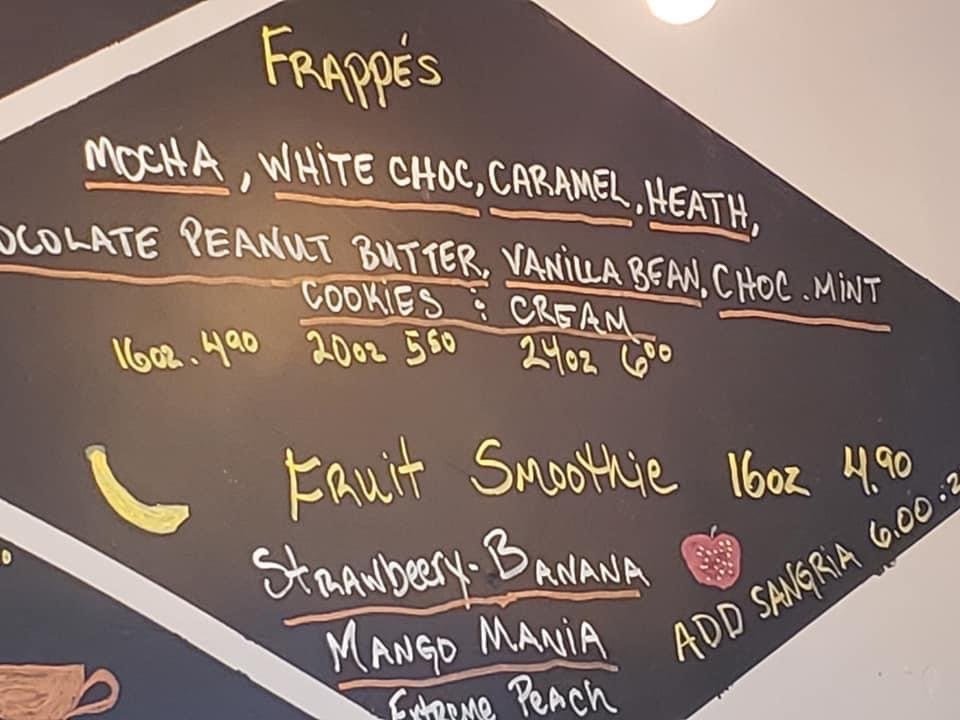 FRAPPÉS
MOCHA, WHITE CHOC, CARAMEL, HEATH,
OCOLATE PEANUT BUTTER, VANILLA BEAN, CHOC. MINT
COOKIES : CREAM
16oz. 4.90 20oz 5.50 24oz 6.00
FRuit Smoothie 16oz 4.90
StRAWbeery-BANANA
ADD SANGRIA 6.00
MANGO MANiA
Extreme Peach